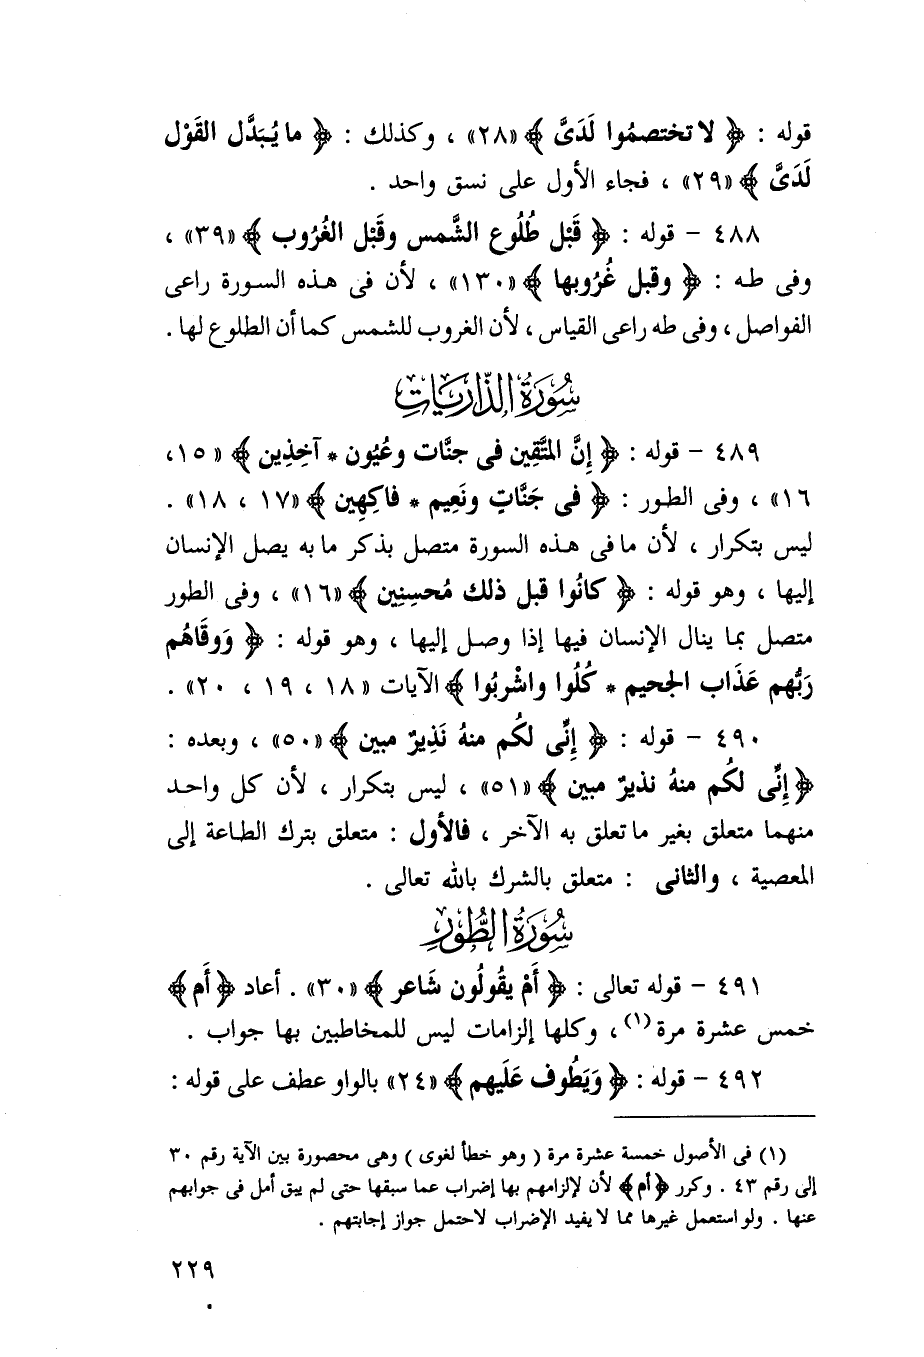 قوله : ﴿ لا تختصمُوا لَدَىَّ ﴾ «٢٨» ، وكذلك : ﴿ ما يُبَدَّل القَوْل
لَدَىَّ ﴾ «٢٩» ، فجاء الأول على نسق واحد .
٤٨٨ – قوله : ﴿ قَبْل طُلُوع الشَّمس وقَبْل الغُرُوب ﴾ «٣٩» ،
وفى طه : ﴿ وقبل غُرُوبها ﴾ «١٣٠» ، لأن فى هذه السورة راعى
الفواصل ، وفى طه راعى القياس ، لأن الغروب للشمس كما أن الطلوع لها .
سُورَةُ الذَّارِيَاتِ
٤٨٩ – قوله : ﴿ إِنَّ المتَّقِين فى جنَّات وعُيُون * آخِذِين ﴾ «١٥ ،
١٦» ، وفى الطور : ﴿ فى جَنَّاتٍ ونَعِيم * فاكِهِين ﴾ «١٧ ، ١٨» .
ليس بتكرار ، لأن ما فى هذه السورة متصل بذكر ما به يصل الإنسان
إليها ، وهو قوله : ﴿ كانُوا قبل ذلك مُحسِنِين ﴾ «١٦» ، وفى الطور
متصل بما ينال الإنسان فيها إذا وصل إليها ، وهو قوله : ﴿ وَوقَاهُم
رَبُّهم عَذَاب الجحيم * كُلُوا واشْربُوا ﴾ الآيات «١٨ ، ١٩ ، ٢٠» .
٤٩٠ – قوله : ﴿ إِنِّى لكُم منهُ نَذِيرٌ مبين ﴾ «٥٠» ، وبعده :
﴿ إِنِّى لكُم منهُ نذيرٌ مبين ﴾ «٥١» ، ليس بتكرار ، لأن كل واحد
منهما متعلق بغير ما تعلق به الآخر ، فالأول : متعلق بترك الطاعة إلى
المعصية ، والثانى : متعلق بالشرك بالله تعالى .
سُورَةُ الطُّورِ
٤٩١ – قوله تعالى : ﴿ أَمْ يقُولُون شَاعر ﴾ «٣٠» . أعاد ﴿ أَم ﴾
خمس عشرة مرة (١) ، وكلها إلزامات ليس للمخاطبين بها جواب .
٤٩٢ – قوله : ﴿ وَيَطُوف عَلَيهم ﴾ «٢٤» بالواو عطف على قوله :
(١) فى الأصول خمسة عشرة مرة ( وهو خطأ لغوى ) وهى محصورة بين الآية رقم ٣٠
إلى رقم ٤٣ . وكرر ﴿ أم ﴾ لأن لإلزامهم بها إضراب عما سبقها حتى لم يبق أمل فى جوابهم
عنها . ولو استعمل غيرها مما لا يفيد الإضراب لاحتمل جواز إجابتهم .
٢٢٩